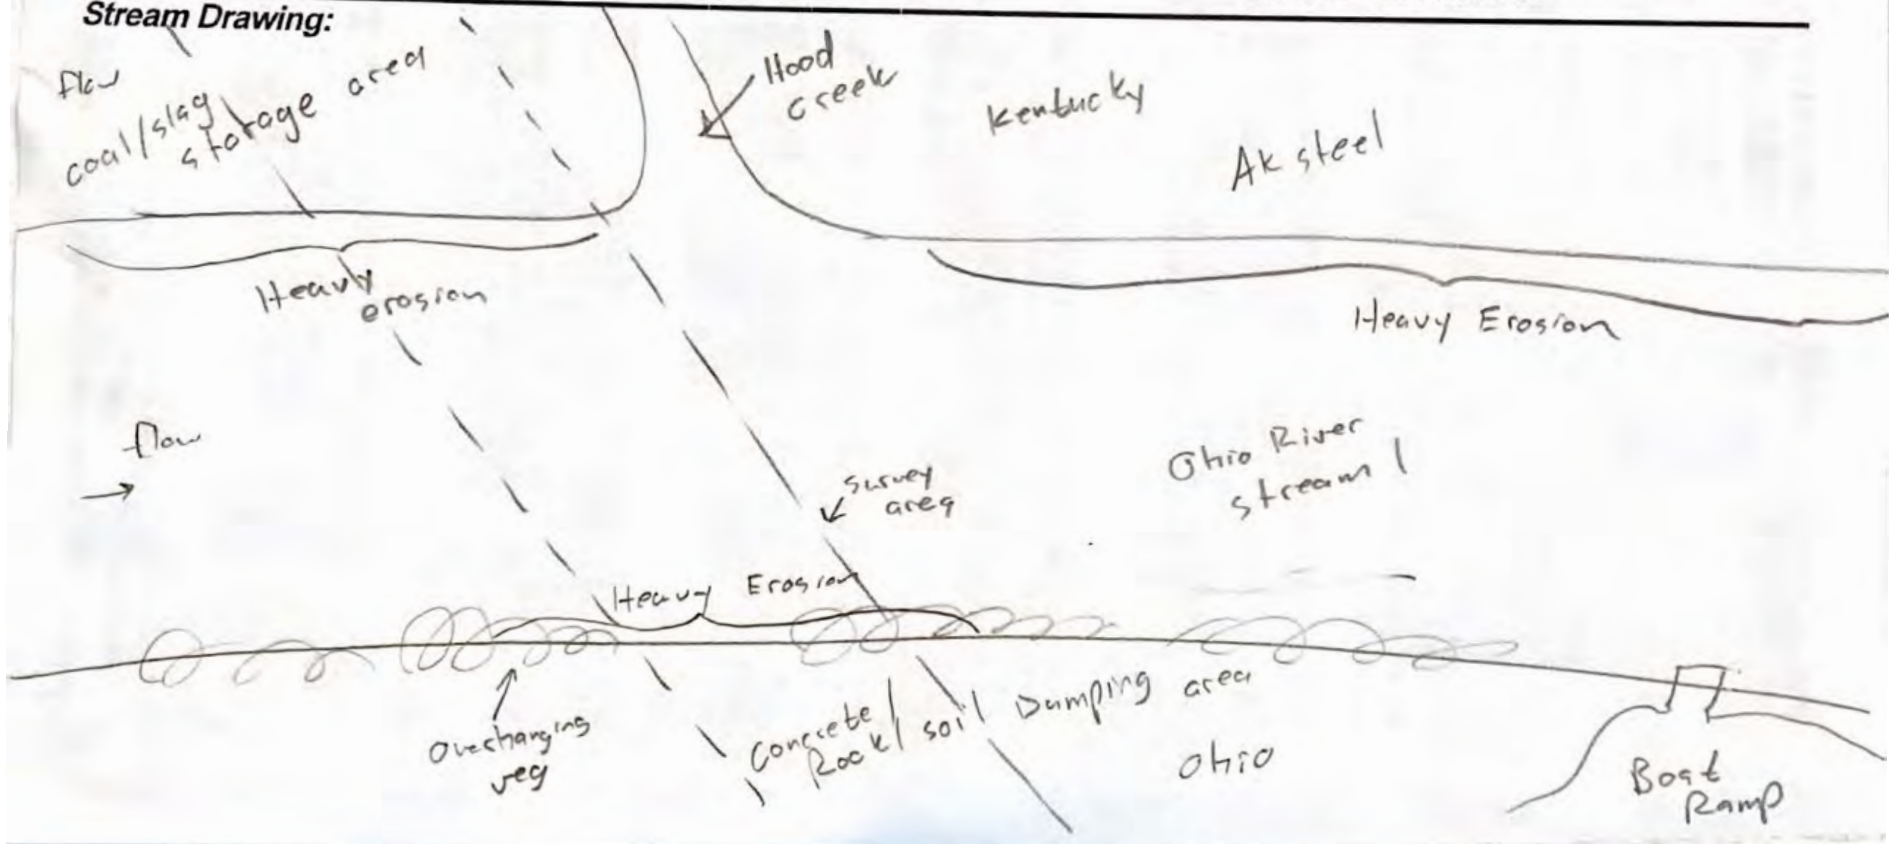 Stream Drawing:
flow
coal/slag
storage area
Hood
Creek
Kentucky
Ak steel
Heavy
erosion
Heavy Erosion
flow
survey
area
Ohio River
stream 1
Heavy Erosion
Overhanging
veg
Concrete/
Rock/soil Dumping area
Ohio
Boat
Ramp